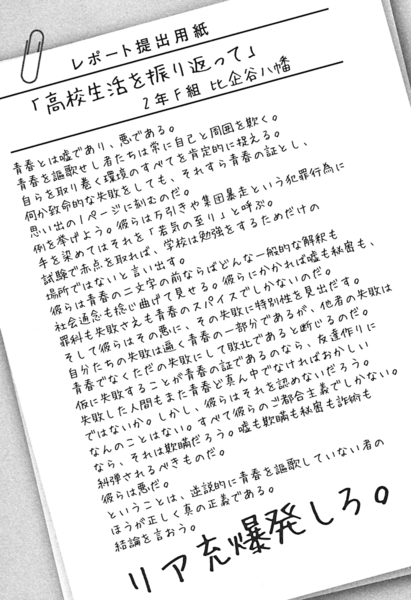 レポート提出用紙
「高校生活を振り返って」
2年F組 比企谷八幡
青春とは嘘であり、悪である。
青春を謳歌せし者たちは常に自己と周囲を欺く。
自らを取り巻く環境のすべてを肯定的に捉える。
何か致命的な失敗をしても、それすら青春の証とし、
思い出の1ページに刻むのだ。
例を挙げよう。彼らは万引きや集団暴走という犯罪行為に
手を染めてはそれを「若気の至り」と呼ぶ。
試験で赤点を取れば、学校は勉強をするためだけの
場所ではないと言い出す。
彼らは青春の二文字の前ならばどんな一般的な解釈も
社会通念も捻じ曲げて見せる。彼らにかかれば嘘も秘密も、
罪科も失敗さえも青春のスパイスでしかないのだ。
そして彼らはその悪に、その失敗に特別性を見出だす。
自分たちの失敗は遍く青春の一部分であるが、他者の失敗は
青春でなくただの失敗にして敗北であると断じるのだ。
仮に失敗することが青春の証であるのなら、友達作りに
失敗した人間もまた青春ど真ん中でなければおかしい
ではないか。しかし、彼らはそれを認めないだろう。
なんのことはない。すべて彼らのご都合主義でしかない。
なら、それは欺瞞だろう。嘘も欺瞞も秘密も詐術も
糾弾されるべきものだ。
彼らは悪だ。
ということは、逆説的に青春を謳歌していない者の
ほうが正しく真の正義である。
結論を言おう。
リア充爆発しろ。